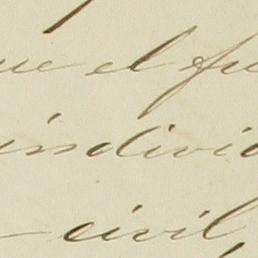 ue el fu
indivi
civil